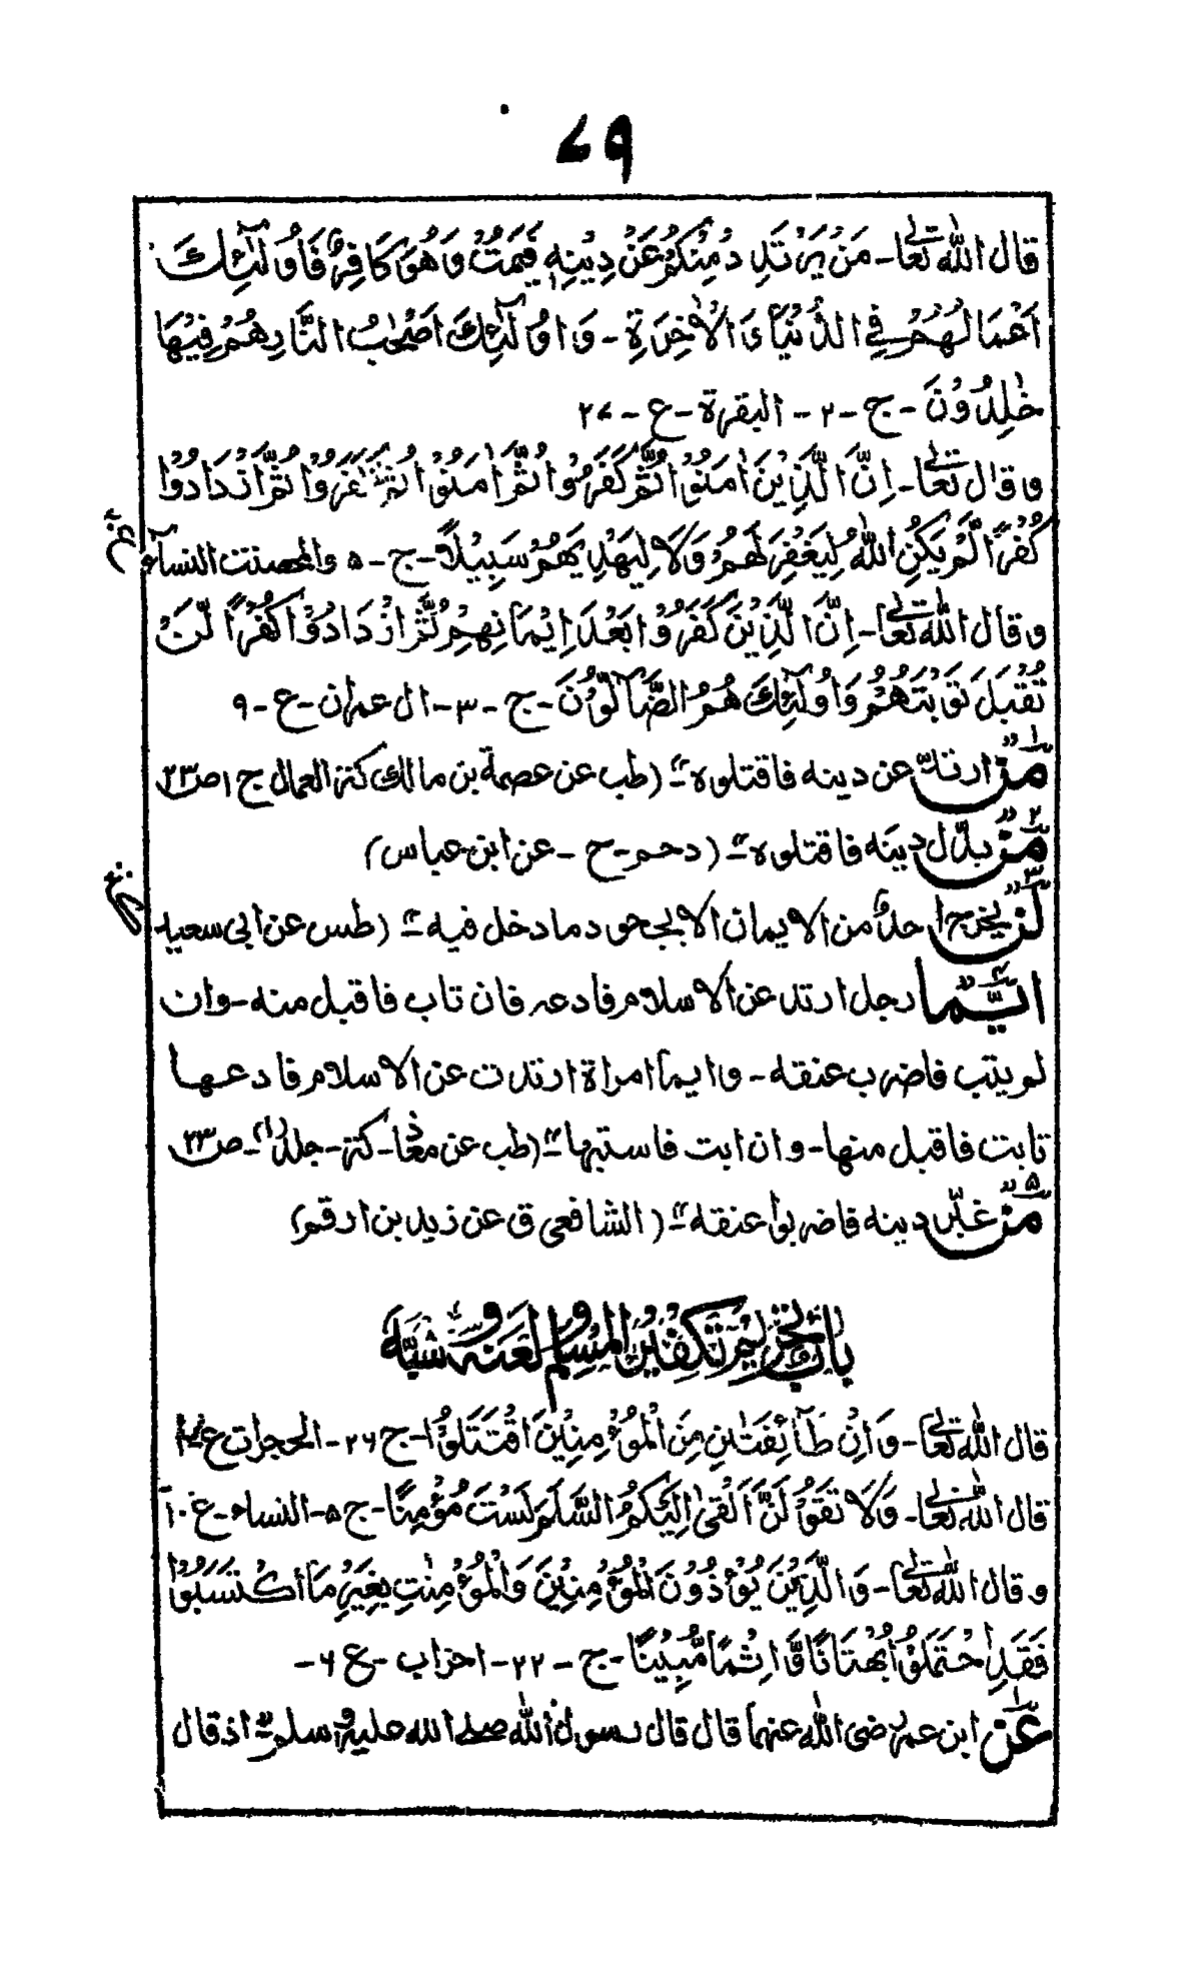 ۷۹
قال الله تعالى - مَنْ يَرْتَدِدْ مِنْكُمْ عَنْ دِيْنِهٖ فَيَمُتْ وَهُوَ كَافِرٌ فَاُولٰٓئِكَ
اَعْمَالُهُمْ فِي الدُّنْيَا وَالْاٰخِرَةِ - وَاُولٰٓئِكَ اَصْحٰبُ النَّارِ هُمْ فِيْهَا
خٰلِدُوْنَ - ج - ۲ - البقرة - ع - ۲۷
وقال تعالى - اِنَّ الَّذِيْنَ اٰمَنُوْا ثُمَّ كَفَرُوْا ثُمَّ اٰمَنُوْا ثُمَّ كَفَرُوْا ثُمَّ ازْدَادُوْا
كُفْرًا لَّمْ يَكُنِ اللهُ لِيَغْفِرَ لَهُمْ وَلَا لِيَهْدِيَهُمْ سَبِيْلًا - ج - ۵ والمحصنت النسآء
وقال الله تعالى - اِنَّ الَّذِيْنَ كَفَرُوْا بَعْدَ اِيْمَانِهِمْ ثُمَّ ازْدَادُوْا كُفْرًا لَّنْ
تُقْبَلَ تَوْبَتُهُمْ وَاُولٰٓئِكَ هُمُ الضَّآلُّوْنَ - ج - ۳ - ال عمران - ع - ۹
۱ مَنْ ارتدّ عن دينه فاقتلوه" (طب عن عصمة بن مالك كنز العمال ج ۱ ص ۲۳
۲ مَنْ بدّل دينه فاقتلوه" (دحم - ح - عن ابن عباس)
۳ لن يخرج احدٌ من الايمان الا بجحود ما دخل فيه" (طس عن ابى سعيد
۴ ايّما رجل ارتد عن الاسلام فادعه فان تاب فاقبل منه - وان
لم يتب فاضرب عنقه - وايما امراة ارتدت عن الاسلام فادعها
تابت فاقبل منها - وان ابت فاستبها" (طب عن معاذ - كنز - جلد (۱) - ص ۲۳
۵ من غيّر دينه فاضربوا عنقه" (الشافعى ق عن زيد بن ارقم)
باب تحريم تكفير المسلم ولعنه وسبّه
قال الله تعالى - وَاِنْ طَآئِفَتٰنِ مِنَ الْمُؤْمِنِيْنَ اقْتَتَلُوْا - ج ۲۶ - الحجرات ع
قال الله تعالى - وَلَا تَقُوْلُوْا لِمَنْ اَلْقٰى اِلَيْكُمُ السَّلَمَ لَسْتَ مُؤْمِنًا - ج ۵ - النساء - ع ۱۰
وقال الله تعالى - وَالَّذِيْنَ يُؤْذُوْنَ الْمُؤْمِنِيْنَ وَالْمُؤْمِنٰتِ بِغَيْرِ مَا اكْتَسَبُوْا
فَقَدِ احْتَمَلُوْا بُهْتَانًا وَّاِثْمًا مُّبِيْنًا - ج - ۲۲ - احزاب - ع ۶ -
۱ عن ابن عمر رضى الله عنهما قال قال رسول الله صلى الله عليه وسلم" اذ قال